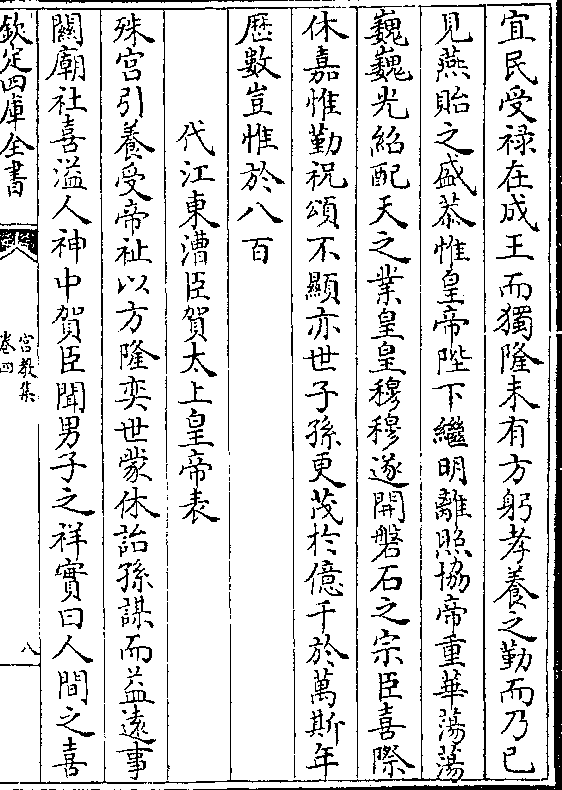 宜民受禄在成王而獨隆未有方躬孝養之勤而乃已
見燕貽之盛恭惟皇帝陛下繼明離照協帝重華蕩蕩
巍巍光紹配天之業皇皇穆穆遂開磐石之宗臣喜際
休嘉惟勤祝頌不顯亦世子孫更茂於億千於萬斯年
厯數豈惟於八百
代江東漕臣賀太上皇帝表
殊宫引養受帝祉以方隆奕世蒙休詒孫謀而益遠事
關廟社喜溢人神中賀臣聞男子之祥實曰人間之喜
欽定四庫全書
宫教集
卷四
八